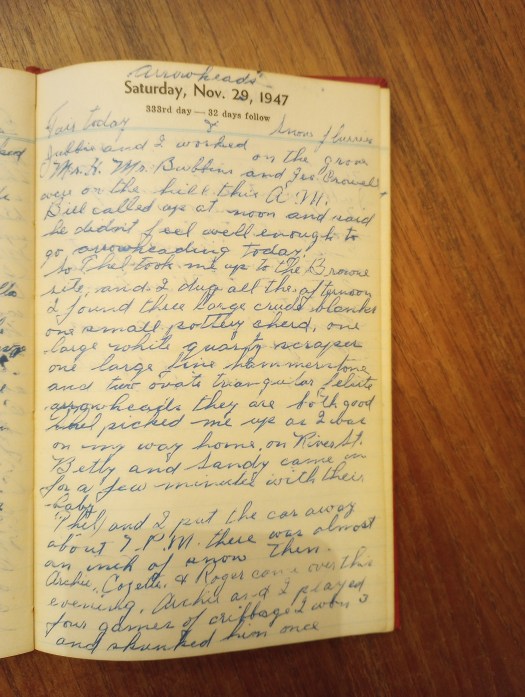 Arrowheads
Saturday, Nov. 29, 1947
333rd day — 32 days follow
Fair today & Snow flurries
Jubbie and I worked on the grove
Mr. K. Mr. Bubbins and Geo.
over on the hill this A.M.
Bill called up at noon and said
he didn't feel well enough to
go arrowheading today.
So Phil took me up to the Browne
site, and I dug all the afternoon
I found three large crude blanks
one small pottery sherd, one
large white quartz scraper
one large fine hammerstone
and two ovate triangular felsite
arrowheads they are both good
Phil picked me up as I was
on my way home, on River St.
Betty and Sandy came in
for a few minutes with their
baby
Phil and I put the car away
about 7 P.M. there was almost
an inch of snow then.
Archie, Cozette, & Roger came over this
evening, Archie and I played
four games of cribbage I won 3
and skunked him once